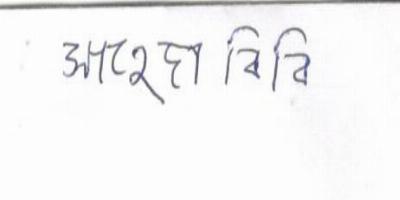 আবেদা বিবি